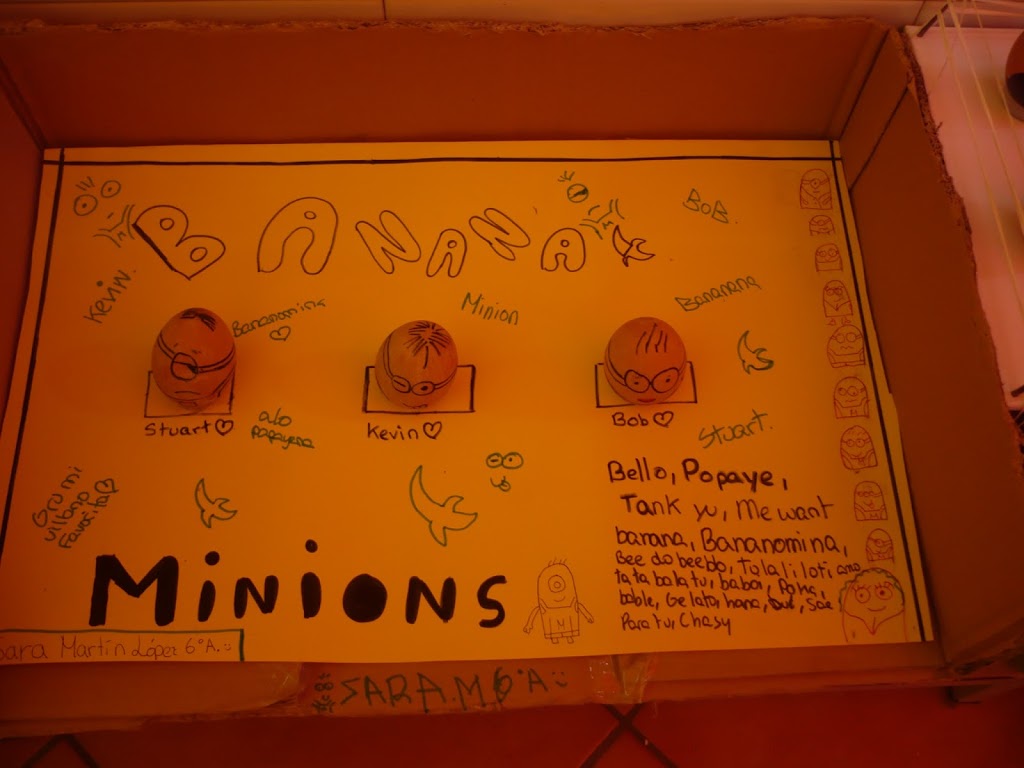 BANANA
BOB.
Kevin.
Bananomina
Minion
Bananana
Stuart
Kevin
Bob
alo
Papayena
Stuart.
Gru mi
villano
Favorito
Bello, Popaye,
Tank yu, Me want
banana, Bananomina,
Bee do bee do, Tulaliloti, ana
ta ta bala tu, babos, Poka,
bable, Gelato, hana, Sae
Para tu, Chasy
MiNiONS
M
Sara Martín López 6°A.
SARA.M 6°A